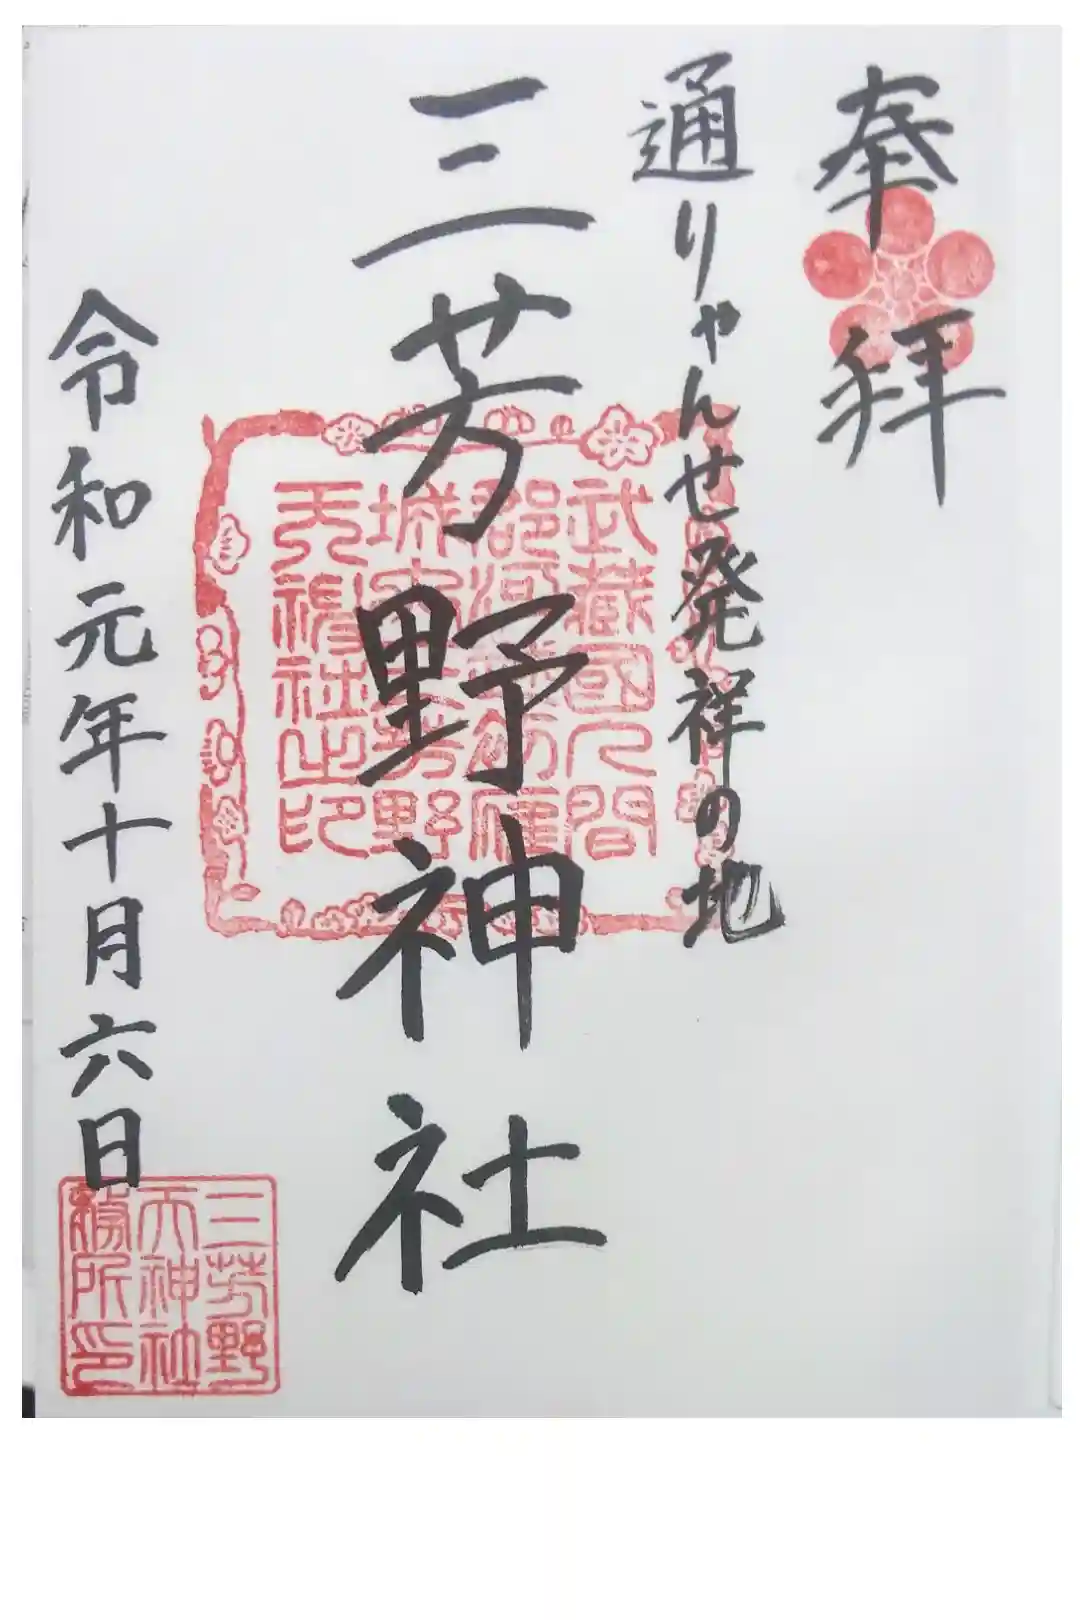 奉拝
通りゃんせ発祥の地
三芳野神社
令和元年十月六日
武蔵國入間
天神社之印
三芳野
天神社
務所印